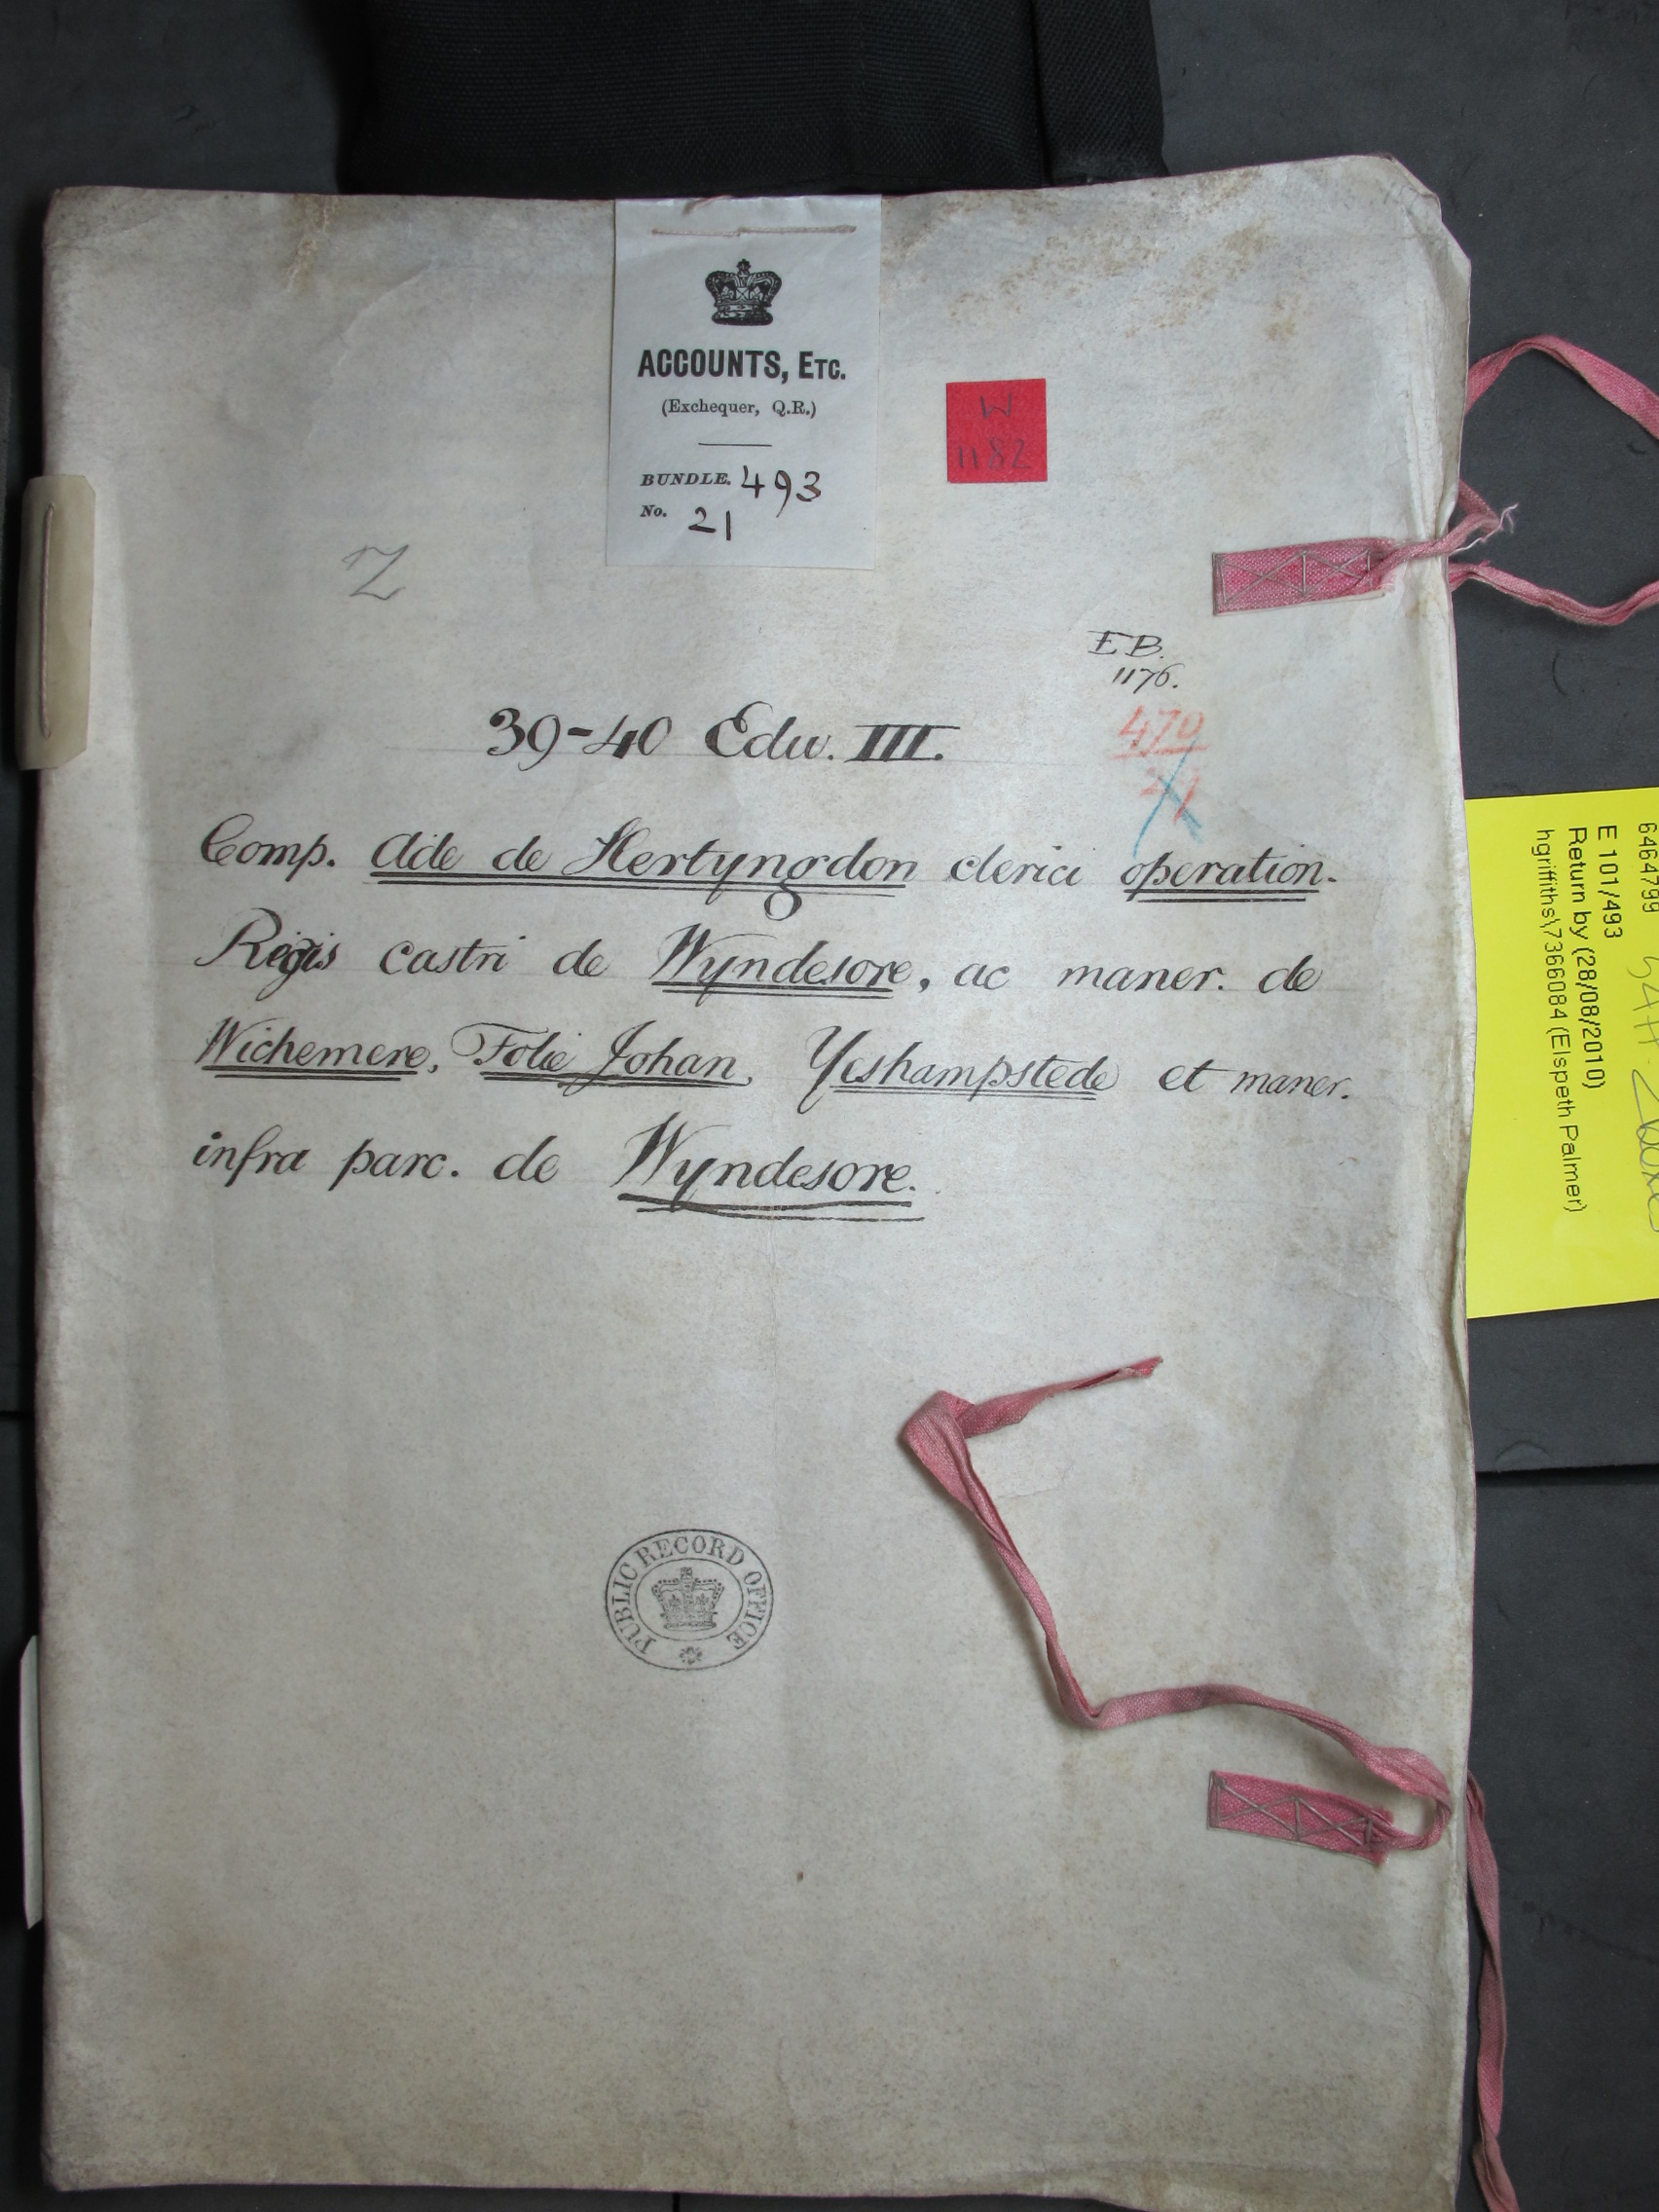 ACCOUNTS, ETC.
(Exchequer, Q.R.)
BUNDLE. 493
No. 21
W
1182
Z
E.B.
1176.
470
21
39-40 Edw. III.
Comp. Ade de Hertyngdon clerici operation.
Regis castri de Wyndesore, ac maner. de
Wichemere, Folie Johan, Yeshampstede et maner.
infra parc. de Wyndesore.
PUBLIC RECORD OFFICE
6464799
E 101/493
Return by (28/08/2010)
hgriffiths\7366084 (Elspeth Palmer)